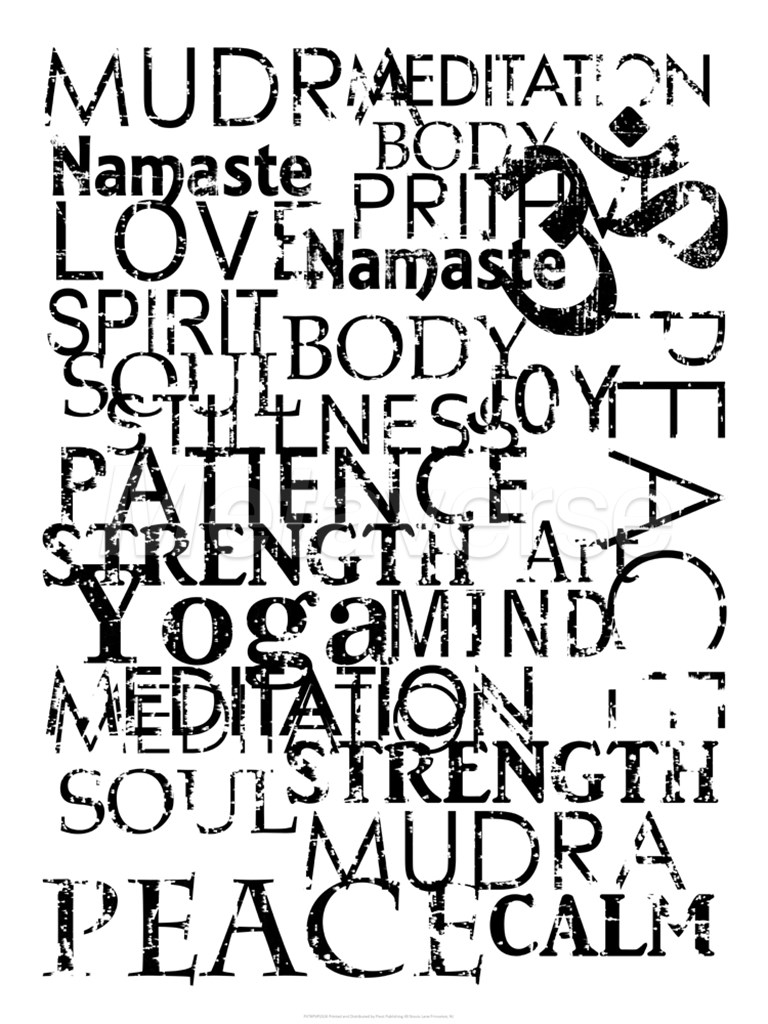 MUDRA MEDITATION
BODY
Namaste
PRITH
LOVE
Namaste
ॐ
SPIRIT
BODY
PEACE
SOUL
JOY
STILLNESS
PATIENCE
Metaverse
STRENGTH
Yoga MIND
MEDITATION
MEDITATION
STRENGTH
SOUL
MUDRA
PEACE
CALM